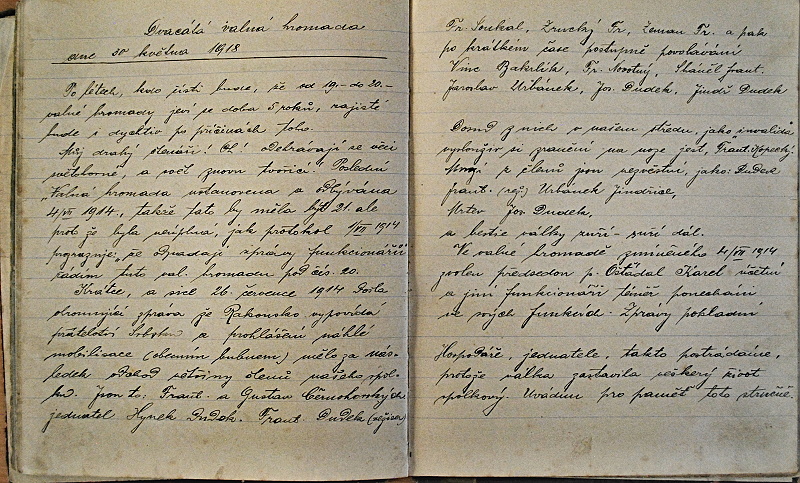 Dvacátá valná hromada
dne 30 května 1918
Po létech, kdo jistí bude, že od 19.- do 20.-
valné hromady jeví se doba 5 roků, zajisté
bude i dychtiv po příčinách toho.
Můj drahý čtenáři! Ó! odehrávají se věci
světoborné, a svět znovu tvořící. Poslední
"Valná" hromada ustanovena a odbývána
4/VII 1914, takže tato by měla být 21. ale
proto že byla neúplná, jak protokol 4/VII 1914
poznamenává, "že odpadají zprávy funkcionářů"
řadím tuto val. hromadu pod čís. 20.
Krátce, a sice 26. července 1914 došla
ohromující zpráva že Rakousko vypovídá
přátelství Srbsku a prohlášení náhlé
mobilisace (obecním bubnem) mělo za nás-
ledek odchod většiny členů našeho spol-
ku. Jsou to: Frant. a Gustav Černohorských
jednatel Hynek Dudek. Frant. Dudek (režisér)
Fr. Soukal, Zrucký Fr, Zeman Fr. a pak
po krátkém čase postupně povolávání
Vinc Bakrlík, Fr. Novotný, Skácel Frant.
Jaroslav Urbánek, Jos. Dudek, Jindř Dudek
Domů z nich v našem středu, jako "invalida"
vyslouživ si zranění na noze jest, Frant. Kopecký.
Mnozí z členů jsou nezvěstni, jako: Dudek
Frant. (rež.) Urbánek Jindřich,
Mrtev Jos. Dudek,
a bestie války zuří - zuří dál.
Ve valné hromadě zmíněného 4/VII 1914
zvolen předsedou p. Ošťádal Karel účetní
a jiní funkcionáři téměř ponecháni
ve svých funkcích. Zprávy pokladní
Hospodáře, jednatele, takto postrádáme,
protože válka zastavila veškerý život
spolkový. Uvádím pro paměť toto stručně.